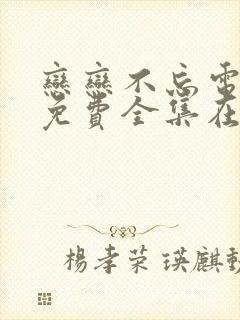 戀戀不忘電
免費全集在
楊孝荣 瑛麒